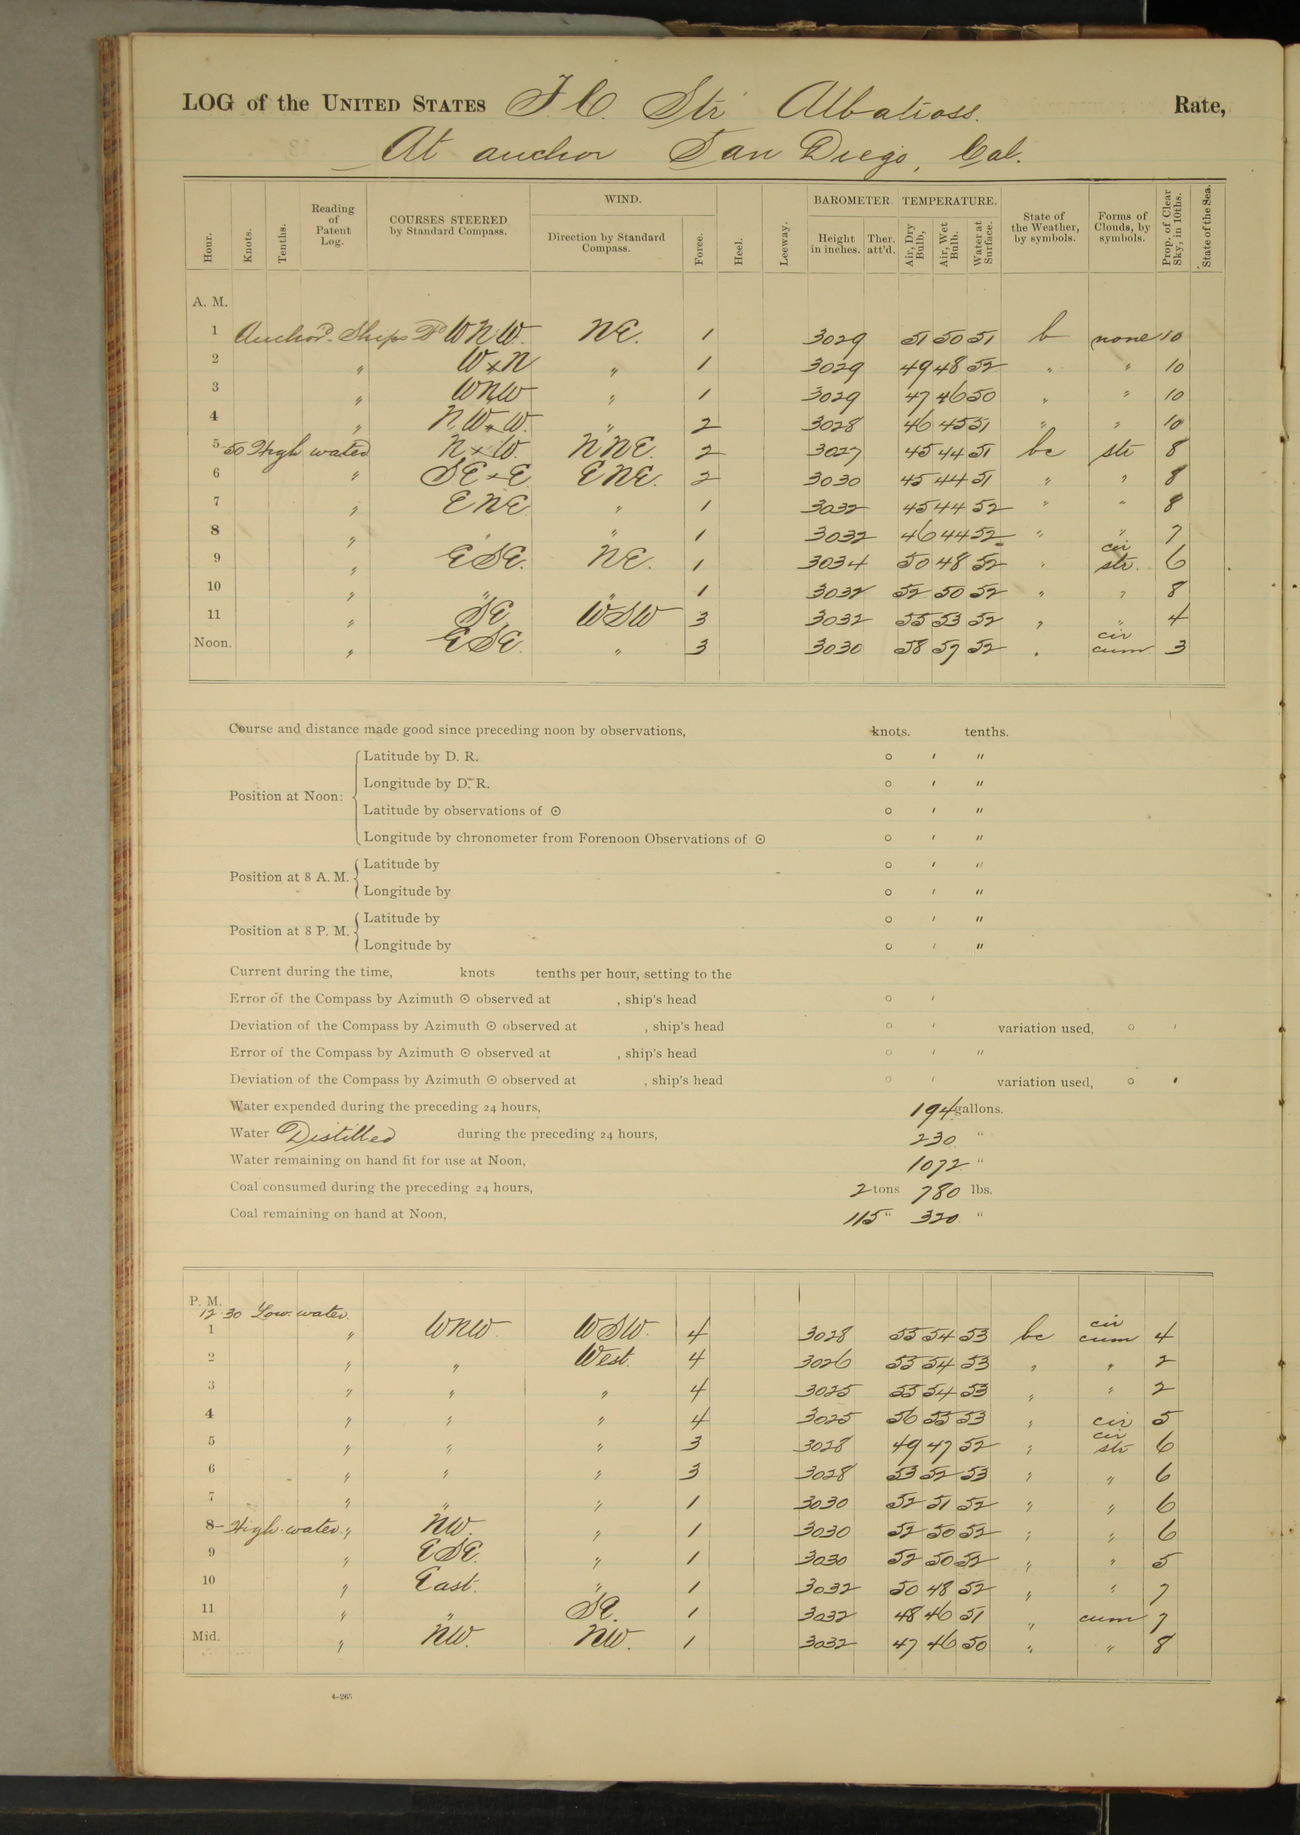 LOG of the UNITED STATES F. C. Str Albatross. Rate,
At anchor San Diego, Cal.
Hour. Knots. Tenths. Reading of Patent Log. COURSES STEERED by Standard Compass. WIND. Direction by Standard Compass. Force. Heel. Leeway. BAROMETER. Height in inches. Ther. att'd. TEMPERATURE. Air, Dry Bulb, Air, Wet Bulb. Water at Surface. State of the Weather, by symbols. Forms of Clouds, by symbols. Prop. of Clear Sky, in 10ths. State of the Sea.
A. M.
1 Anchor'd. Ships Hd WNW. NE. 1 3029 51 50 51 b none 10
2 " WxN " 1 3029 49 48 52 " " 10
3 " WNW " 1 3029 47 46 50 " " 10
4 " NWxW. " 2 3028 46 45 51 " " 10
5 50 High water NxW. NNE. 2 3027 45 44 51 bc str 8
6 " SExE. ENE. 2 3030 45 44 51 " " 8
7 " ENE " 1 3032 45 44 52 " " 8
8 " " " 1 3032 46 44 52 " " 7
9 " ESE. NE. 1 3034 50 48 52 " cir str. 6
10 " " " 1 3032 52 50 52 " " 8
11 " SE WSW 3 3032 55 53 52 " " 4
Noon. " ESE. " 3 3030 58 57 52 " cir cum 3
Course and distance made good since preceding noon by observations, knots. tenths.
Position at Noon: Latitude by D. R. ° ' "
Longitude by D. R. ° ' "
Latitude by observations of ⊙ ° ' "
Longitude by chronometer from Forenoon Observations of ⊙ ° ' "
Position at 8 A. M. Latitude by ° ' "
Longitude by ° ' "
Position at 8 P. M. Latitude by ° ' "
Longitude by ° ' "
Current during the time, knots tenths per hour, setting to the
Error of the Compass by Azimuth ⊙ observed at , ship's head ° '
Deviation of the Compass by Azimuth ⊙ observed at , ship's head ° ' variation used, ° '
Error of the Compass by Azimuth ⊙ observed at , ship's head ° ' "
Deviation of the Compass by Azimuth ⊙ observed at , ship's head ° ' variation used, ° '
Water expended during the preceding 24 hours, 194 gallons.
Water Distilled during the preceding 24 hours, 230 "
Water remaining on hand fit for use at Noon, 1072 "
Coal consumed during the preceding 24 hours, 2 tons 780 lbs.
Coal remaining on hand at Noon, 115 " 320 "
P. M.
12.30 Low water.
1 " WNW. WSW. 4 3028 55 54 53 bc cir cum 4
2 " " West. 4 3026 55 54 53 " " 2
3 " " " 4 3025 55 54 53 " " 2
4 " " " 4 3025 56 55 53 " cir 5
5 " " " 3 3028 49 47 52 " cir str 6
6 " " " 3 3028 53 52 53 " " 6
7 " " " 1 3030 52 51 52 " " 6
8 - High water " NW. " 1 3030 52 50 52 " " 6
9 " ESE. " 1 3030 52 50 52 " " 5
10 " East. " 1 3032 50 48 52 " " 7
11 " " SE. 1 3032 48 46 51 " cum 7
Mid. " NW. NW. 1 3032 47 46 50 " " 8
4-265